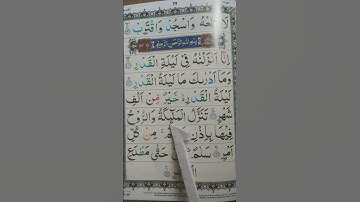 ٢٩
عْهُ وَاسْجُدْ وَاقْتَرِبْ
بِسْمِ اللّٰهِ الرَّحْمٰنِ الرَّحِيْمِ
اِنَّا اَنْزَلْنٰهُ فِيْ لَيْلَةِ الْقَدْرِ
وَمَا اَدْرٰىكَ مَا لَيْلَةُ الْقَدْرِ
لَيْلَةُ الْقَدْرِ خَيْرٌ مِّنْ اَلْفِ
شَهْرٍ تَنَزَّلُ الْمَلٰٓئِكَةُ وَالرُّوْحُ
فِيْهَا بِاِذْنِ مِنْ كُلِّ
اَمْرٍ سَلٰمٌ حَتّٰى مَطْلَعِ